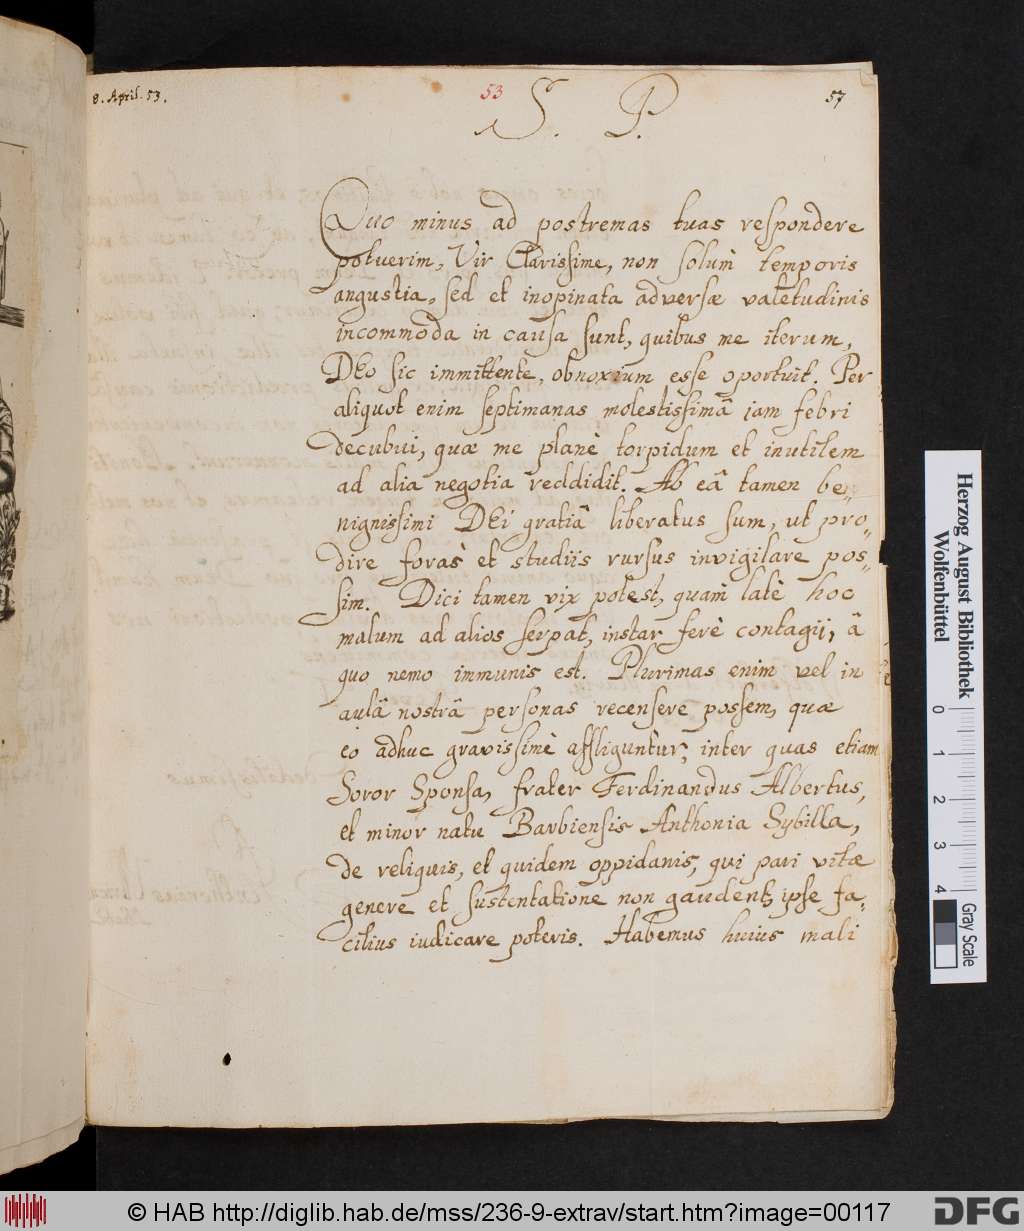 8. April. 53.
53
57
S. P.
Quo minus ad postremas tuas respondere
potuerim, Vir Clarissime, non solùm temporis
angustia, sed et inopinata adversæ valetudinis
incommoda in causa sunt, quibus me iterum,
DEo sic immittente, obnoxium esse oportuit. Per
aliquot enim septimanas molestissimâ jam febri
decubui, quæ me planè torpidum et inutilem
ad alia negotia reddidit. Ab eâ tamen be-
nignissimi DEi gratiâ liberatus sum, ut pro-
dire foras et studiis rursus invigilare pos-
sim. Dici tamen vix potest, quam latè hoc
malum ad alios serpat, instar ferè contagij, â
quo nemo immunis est. Plurimas enim vel in
aulâ nostrâ personas recensere possem, quæ
eo adhuc gravissimè affliguntur; inter quas etiam
Soror Sponsa, frater Ferdinandus Albertus,
et minor natu Barbiensis Anthonia Sybilla,
de reliquis, et quidem oppidanis, qui pari vitæ
genere et sustentatione non gaudent, ipse fa-
cilius iudicare poteris. Habemus huius mali
Herzog August Bibliothek
Wolfenbüttel
0 1 2 3 4
Gray Scale
© HAB http://diglib.hab.de/mss/236-9-extrav/start.htm?image=00117
DFG